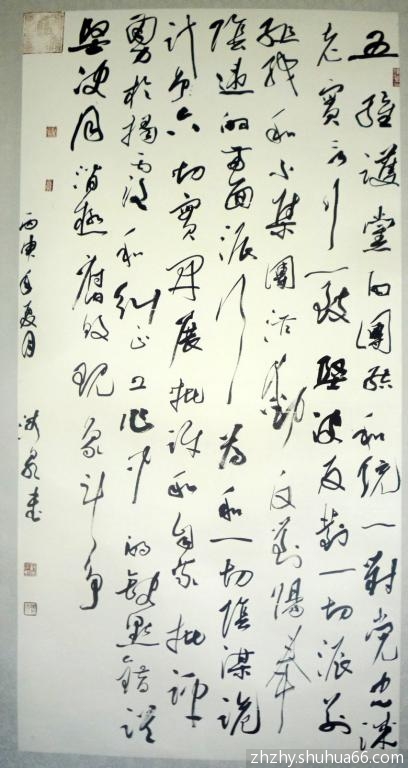 五維護黨的團結和統一對党忠诚
老實言行一致堅決反對一切派别
組織和小集團活動反對陽奉
陰違的两面派行為和一切陰謀詭
计第六切實開展批評和自我批評
勇於揭露和糾正工作中的缺點錯誤
堅決同消極腐败現象斗争
丙申年夏月 書
zhzhy.shuhua66.com